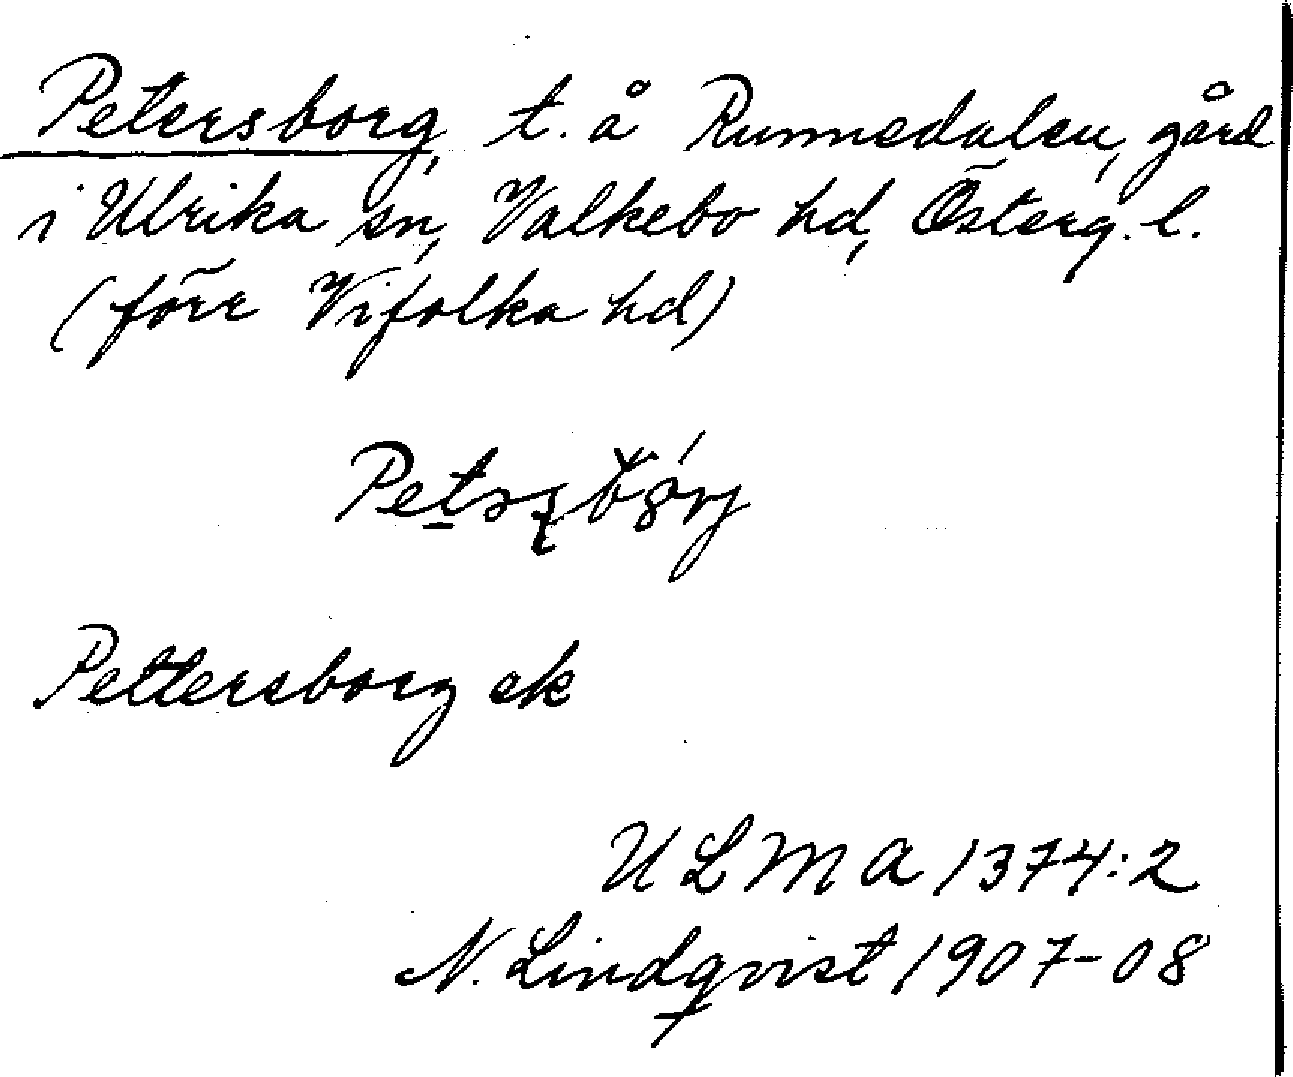 Petersborg, t. å Runnedalen, gård
i Ulrika sn, Valkebo hd, Österg. l.
(förr Vifolka hd)
Pettersborg ek
ULMA 1374:2
N. Lindqvist 1907-08